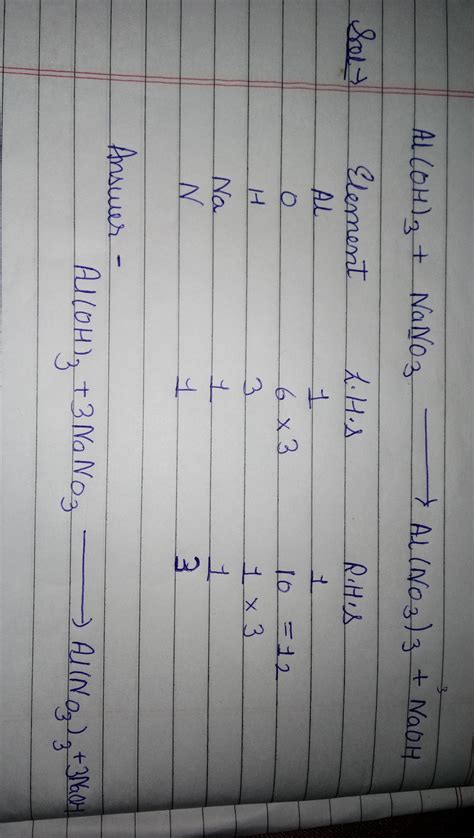 Al(OH)3 + NaNO3 ⟶ Al(NO3)3 + 3NaOH
Sol→ Element L.H.S R.H.S
Al 1 1
O 6 × 3 10 = 12
H 3 1 × 3
Na 1 1
N 1 3
Answer -
Al(OH)3 + 3NaNO3 ⟶ Al(NO3)3 + 3NaOH